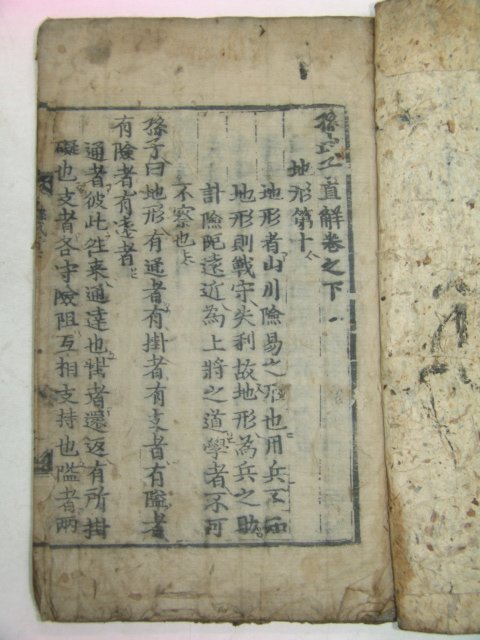 孫武子直解卷之下
地形第十
地形者山川險易之形也用兵不知
地形則戰守失利故地形爲兵之助
計險阨遠近為上將之道學者不可
不察也
孫子曰地形有通者有掛者有支者有隘者
有險者有遠者
通者彼此往來通達也掛者還返有所掛
礙也支者各守險阻互相支持也隘者兩